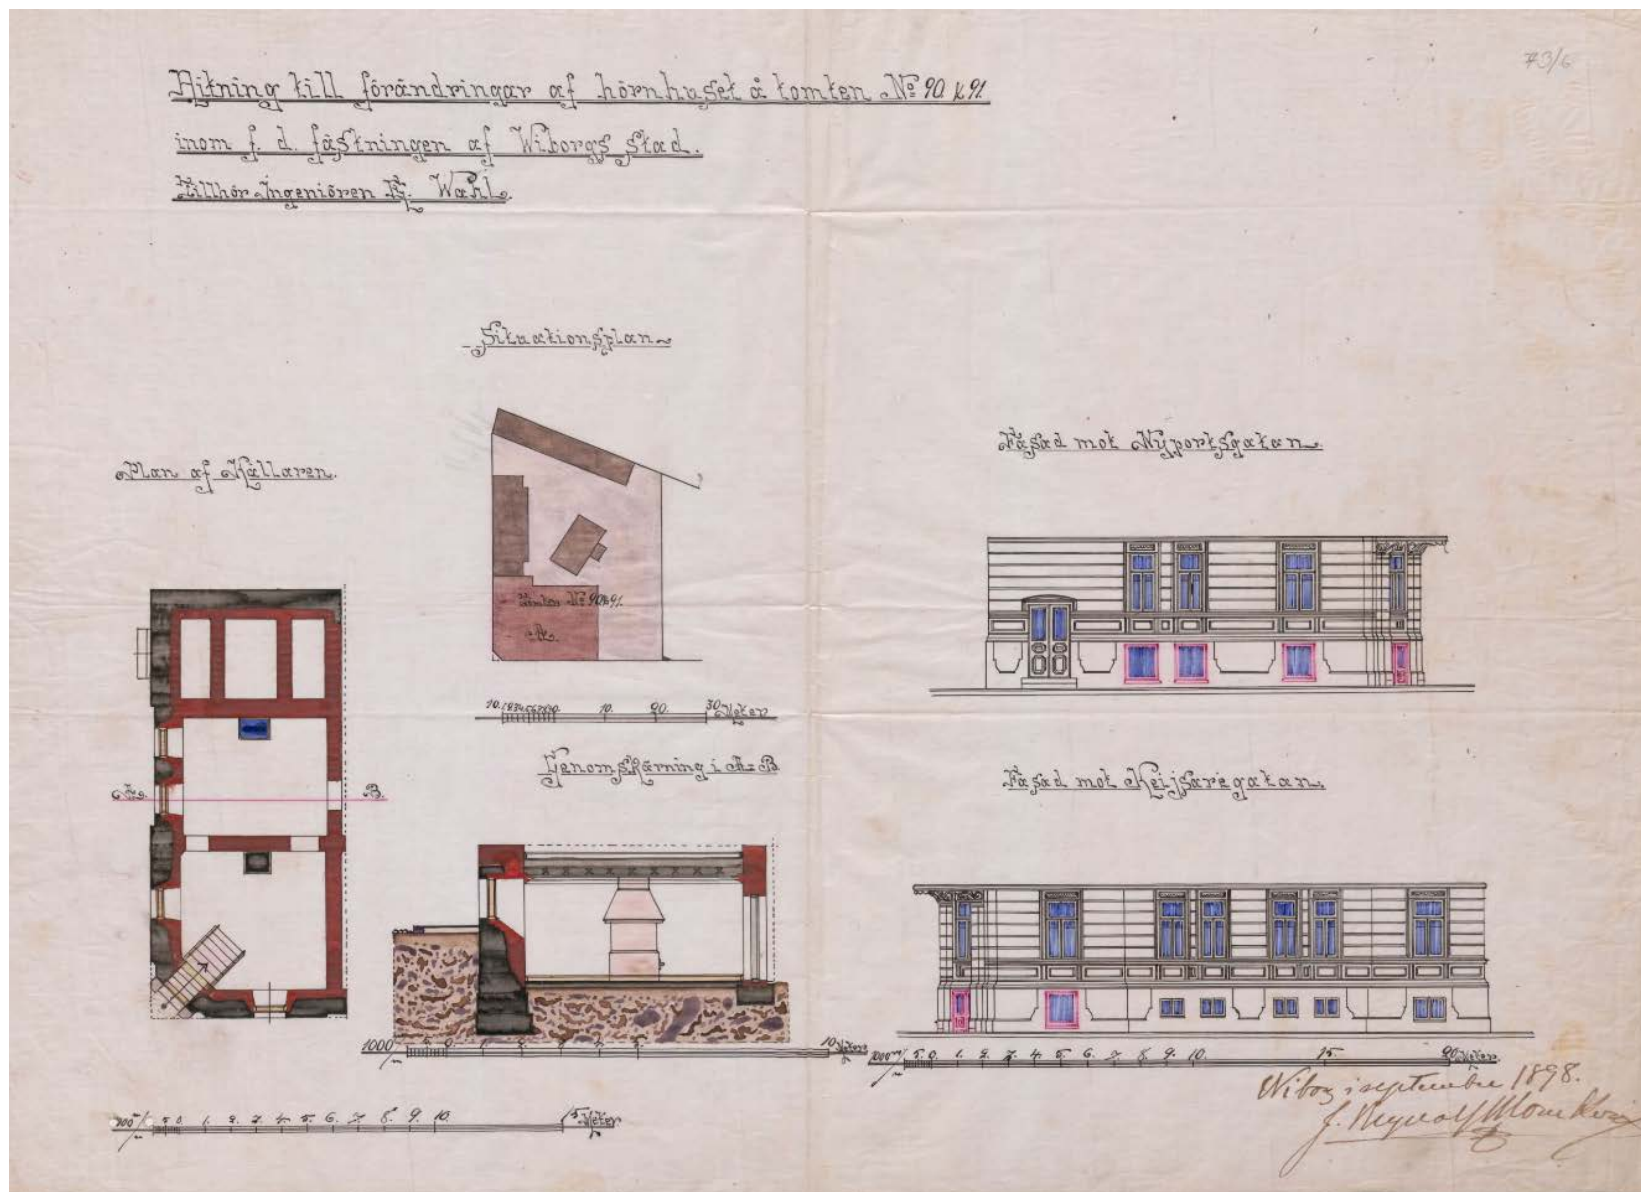 73/6
Ritning till förändringar af hörnhuset å tomten No 90 & 91
inom f. d. fästningen af Wiborgs stad.
Tillhör Ingeniören E. Wahl.
Situationsplan
Plan af Källaren.
Tomten No 90 & 91.
A.
10. 1 2 3 4 5 6 7 8 9 0. 10. 20. 30 Meter
Genomskärning i A-B
A. B.
Fasad mot Nyportsgatan.
Fasad mot Keijsaregatan.
1000 m/m 5. 0. 1. 2. 3. 4. 5. 10 Meter
1000 m/m 5. 0. 1. 2. 3. 4. 5. 6. 7. 8. 9. 10. 15. 20 Meter
5 0. 1. 2. 3. 4. 5. 6. 7. 8. 9. 10. 15 Meter
Wiborg i september 1898.